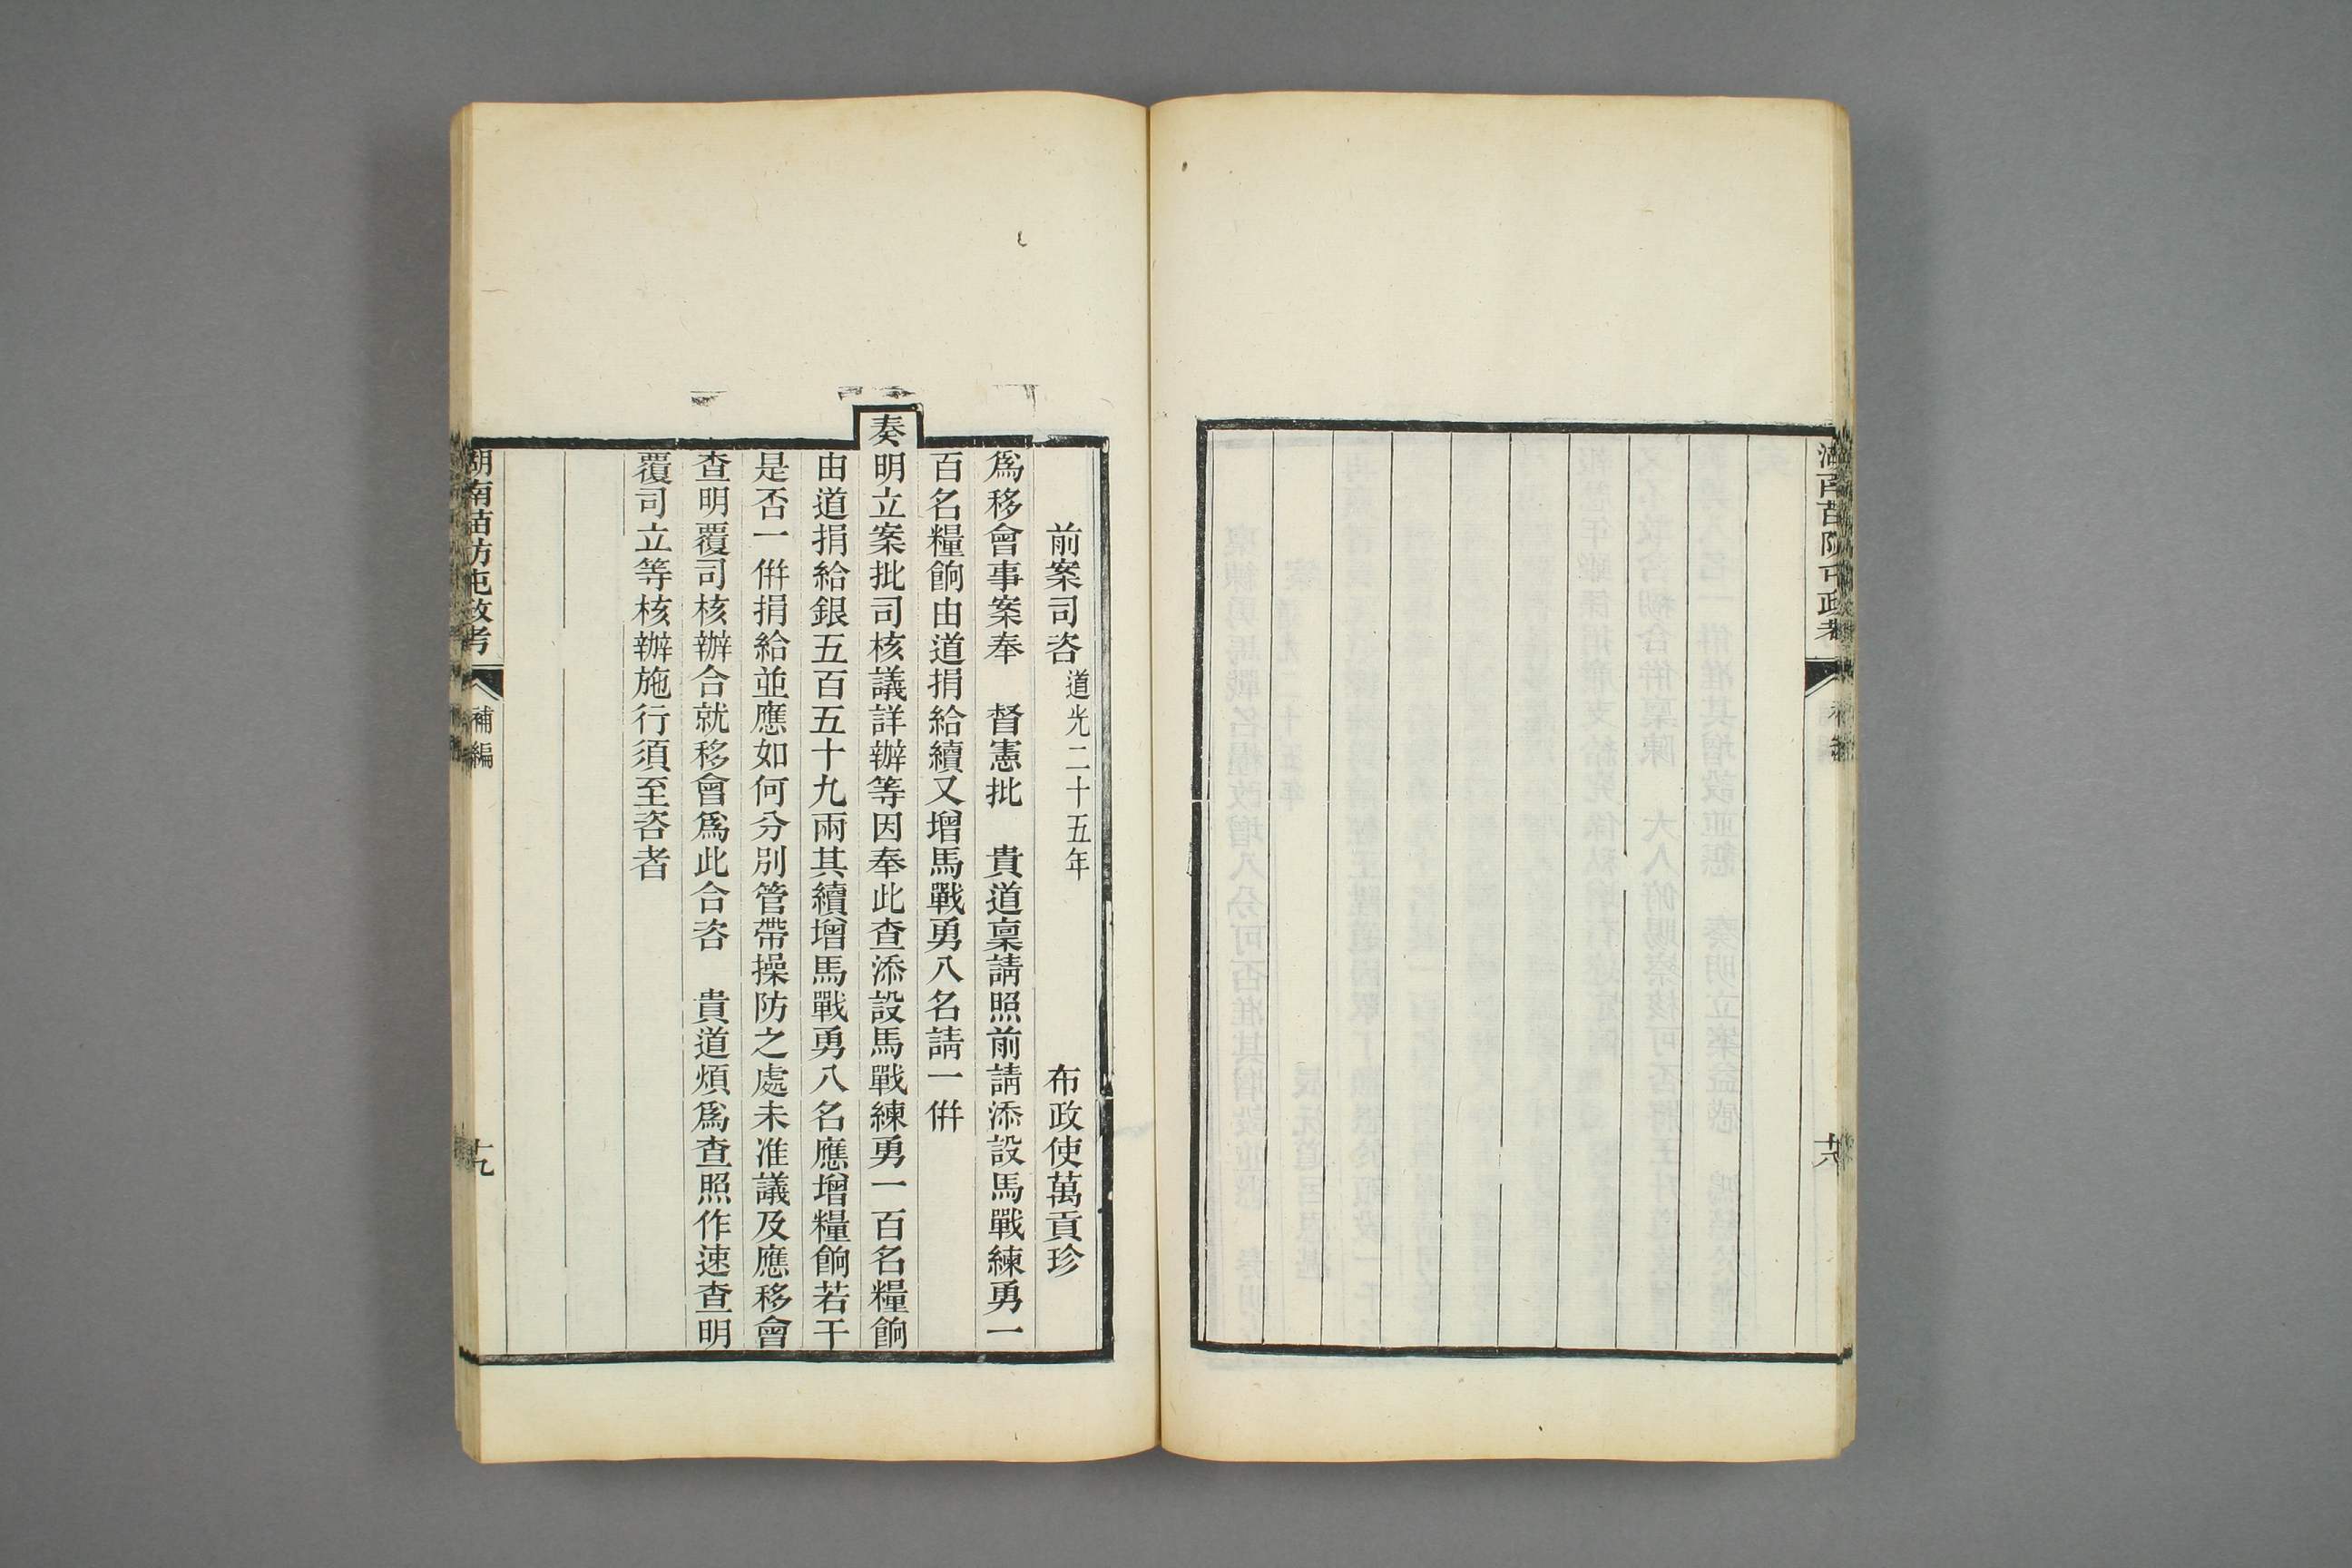 湖南苗防屯政考
補編
十六
前案司咨道光二十五年 布政使萬貢珍
爲移會事案奉 督憲批 貴道稟請照前請添設馬戰練勇一
百名糧餉由道捐給續又增馬戰勇八名請一倂
奏明立案批司核議詳辦等因奉此查添設馬戰練勇一百名糧餉
由道捐給銀五百五十九兩其續增馬戰勇八名應增糧餉若干
是否一倂捐給並應如何分別管帶操防之處未准議及應移會
查明覆司核辦合就移會爲此合咨 貴道煩爲查照作速查明
覆司立等核辦施行須至咨者
湖南苗防屯政考
補編
十九